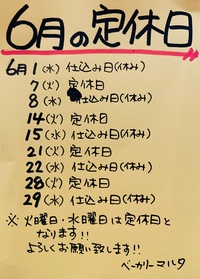 6月の定休日
6月1(水)仕込み日(休み)
7(火)定休日
8(水)仕込み日(休み)
14(火)定休日
15(水)仕込み日(休み)
21(火)定休日
22(水)仕込み日(休み)
28(火)定休日
29(水)仕込み日(休み)
※火曜日・水曜日は定休日と
なります!!
よろしくお願い致します!!
ベーカリーマルタ